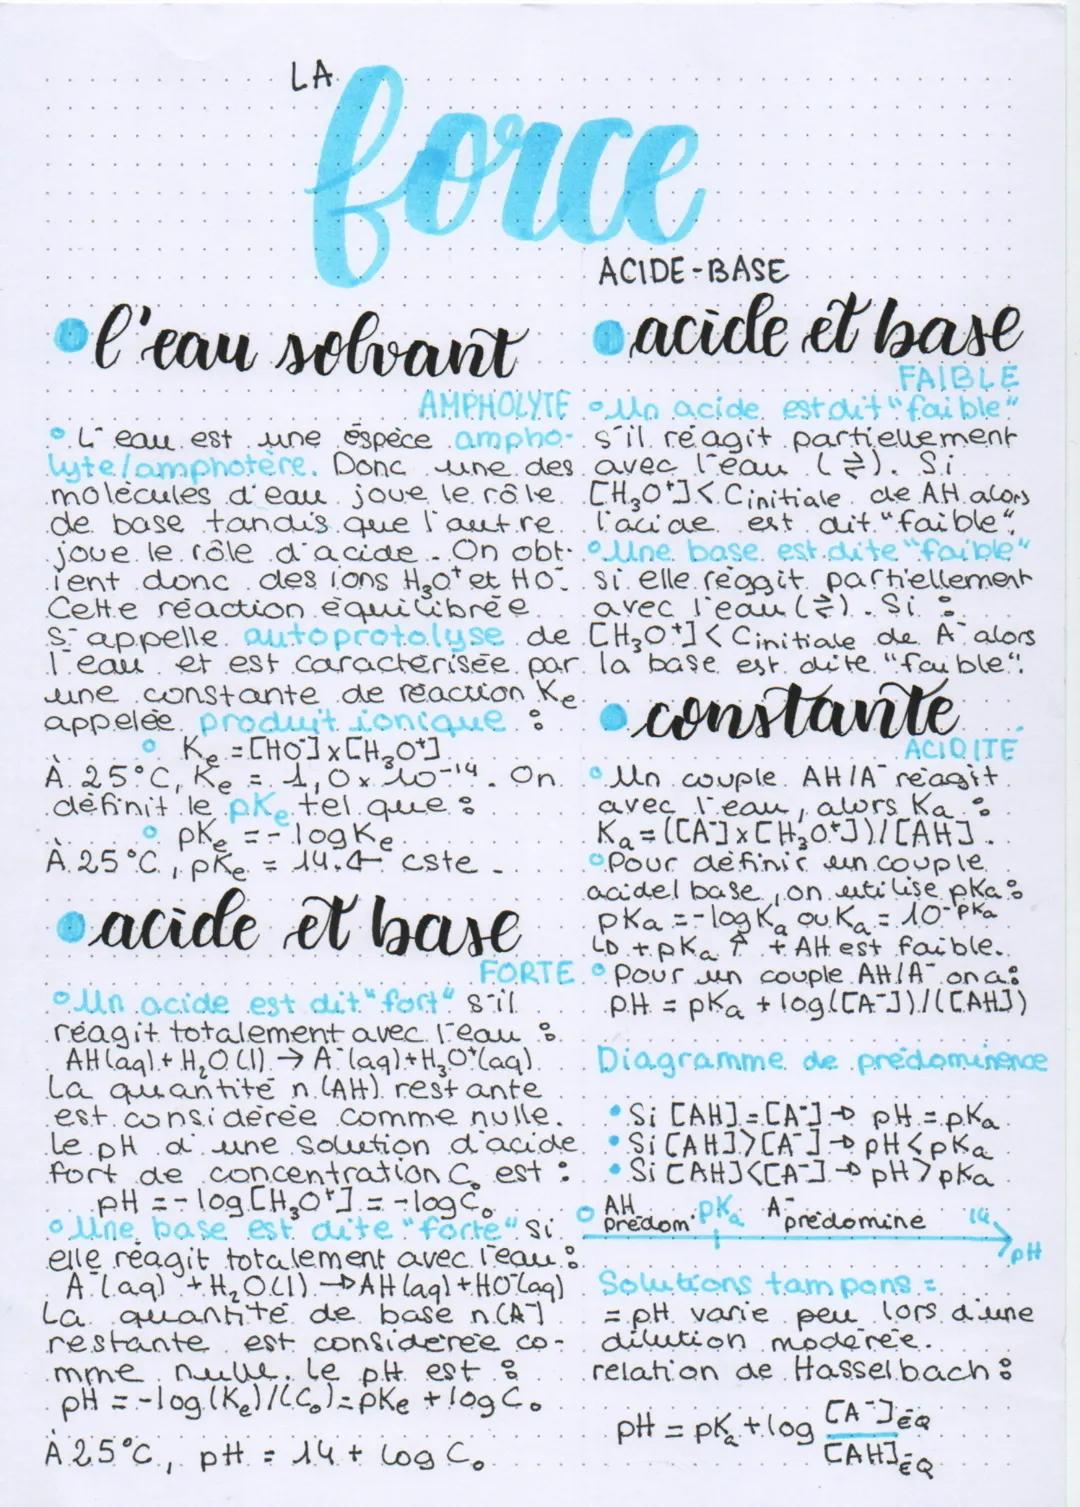 LA
force
ACIDE-BASE
•l'eau solvant
AMPHOLYTE
• L'eau est une espèce ampho-
lyte/amphotère. Donc une des
molécules d'eau joue le rôle
de base tandis que l'autre
joue le rôle d'acide. On obt-
ient donc des ions H₃O⁺ et HO⁻.
Cette réaction équilibrée
s'appelle autoprotolyse de
l'eau et est caractérisée par
une constante de réaction Ke
appelée produit ionique :
• Ke = [HO⁻] x [H₃O⁺]
À 25°C, Ke = 1,0 x 10⁻¹⁴. On
définit le pKe tel que :
• pKe = - log Ke
À 25°C, pKe = 14. ← cste
•acide et base
FORTE
• Un acide est dit "fort" s'il
réagit totalement avec l'eau :
AH(aq) + H₂O(l) → A⁻(aq) + H₃O⁺(aq)
La quantité n(AH) restante
est considérée comme nulle.
Le pH d'une solution d'acide
fort de concentration C₀ est :
pH = - log [H₃O⁺] = - log C₀
• Une base est dite "forte" si
elle réagit totalement avec l'eau :
A⁻(aq) + H₂O(l) → AH(aq) + HO⁻(aq)
La quantité de base n(A⁻)
restante est considérée co-
mme nulle. Le pH est :
pH = -log(Ke)/(C₀) = pKe + log C₀
À 25°C, pH = 14 + log C₀
•acide et base
FAIBLE
• Un acide est dit "faible"
s'il réagit partiellement
avec l'eau (⇌). Si
[H₃O⁺] < Cinitiale de AH alors
l'acide est dit "faible".
• Une base est dite "faible"
si elle réagit partiellement
avec l'eau (⇌). Si :
[CH₃O⁺] < Cinitiale de A⁻ alors
la base est dite "faible".
•constante
ACIDITÉ
• Un couple AH/A⁻ réagit
avec l'eau, alors Ka :
Ka = ([A⁻] x [H₃O⁺])/[AH].
• Pour définir un couple
acide/base, on utilise pKa :
pKa = - log Ka ou Ka = 10⁻ᵖᴷᵃ
↳ + pKa ↑ + AH est faible.
• Pour un couple AH/A⁻ on a :
pH = pKa + log([A⁻])/([AH])
Diagramme de prédominence
• Si [AH] = [A⁻] → pH = pKa
• Si [AH] > [A⁻] → pH < pKa
• Si [AH] < [A⁻] → pH > pKa
0 AH prédom. pKa A⁻ prédomine 14
pH
Solutions tampons :
= pH varie peu lors d'une
dilution modérée.
relation de Hasselbach :
pH = pKa + log [A⁻]éq
[AH]éq